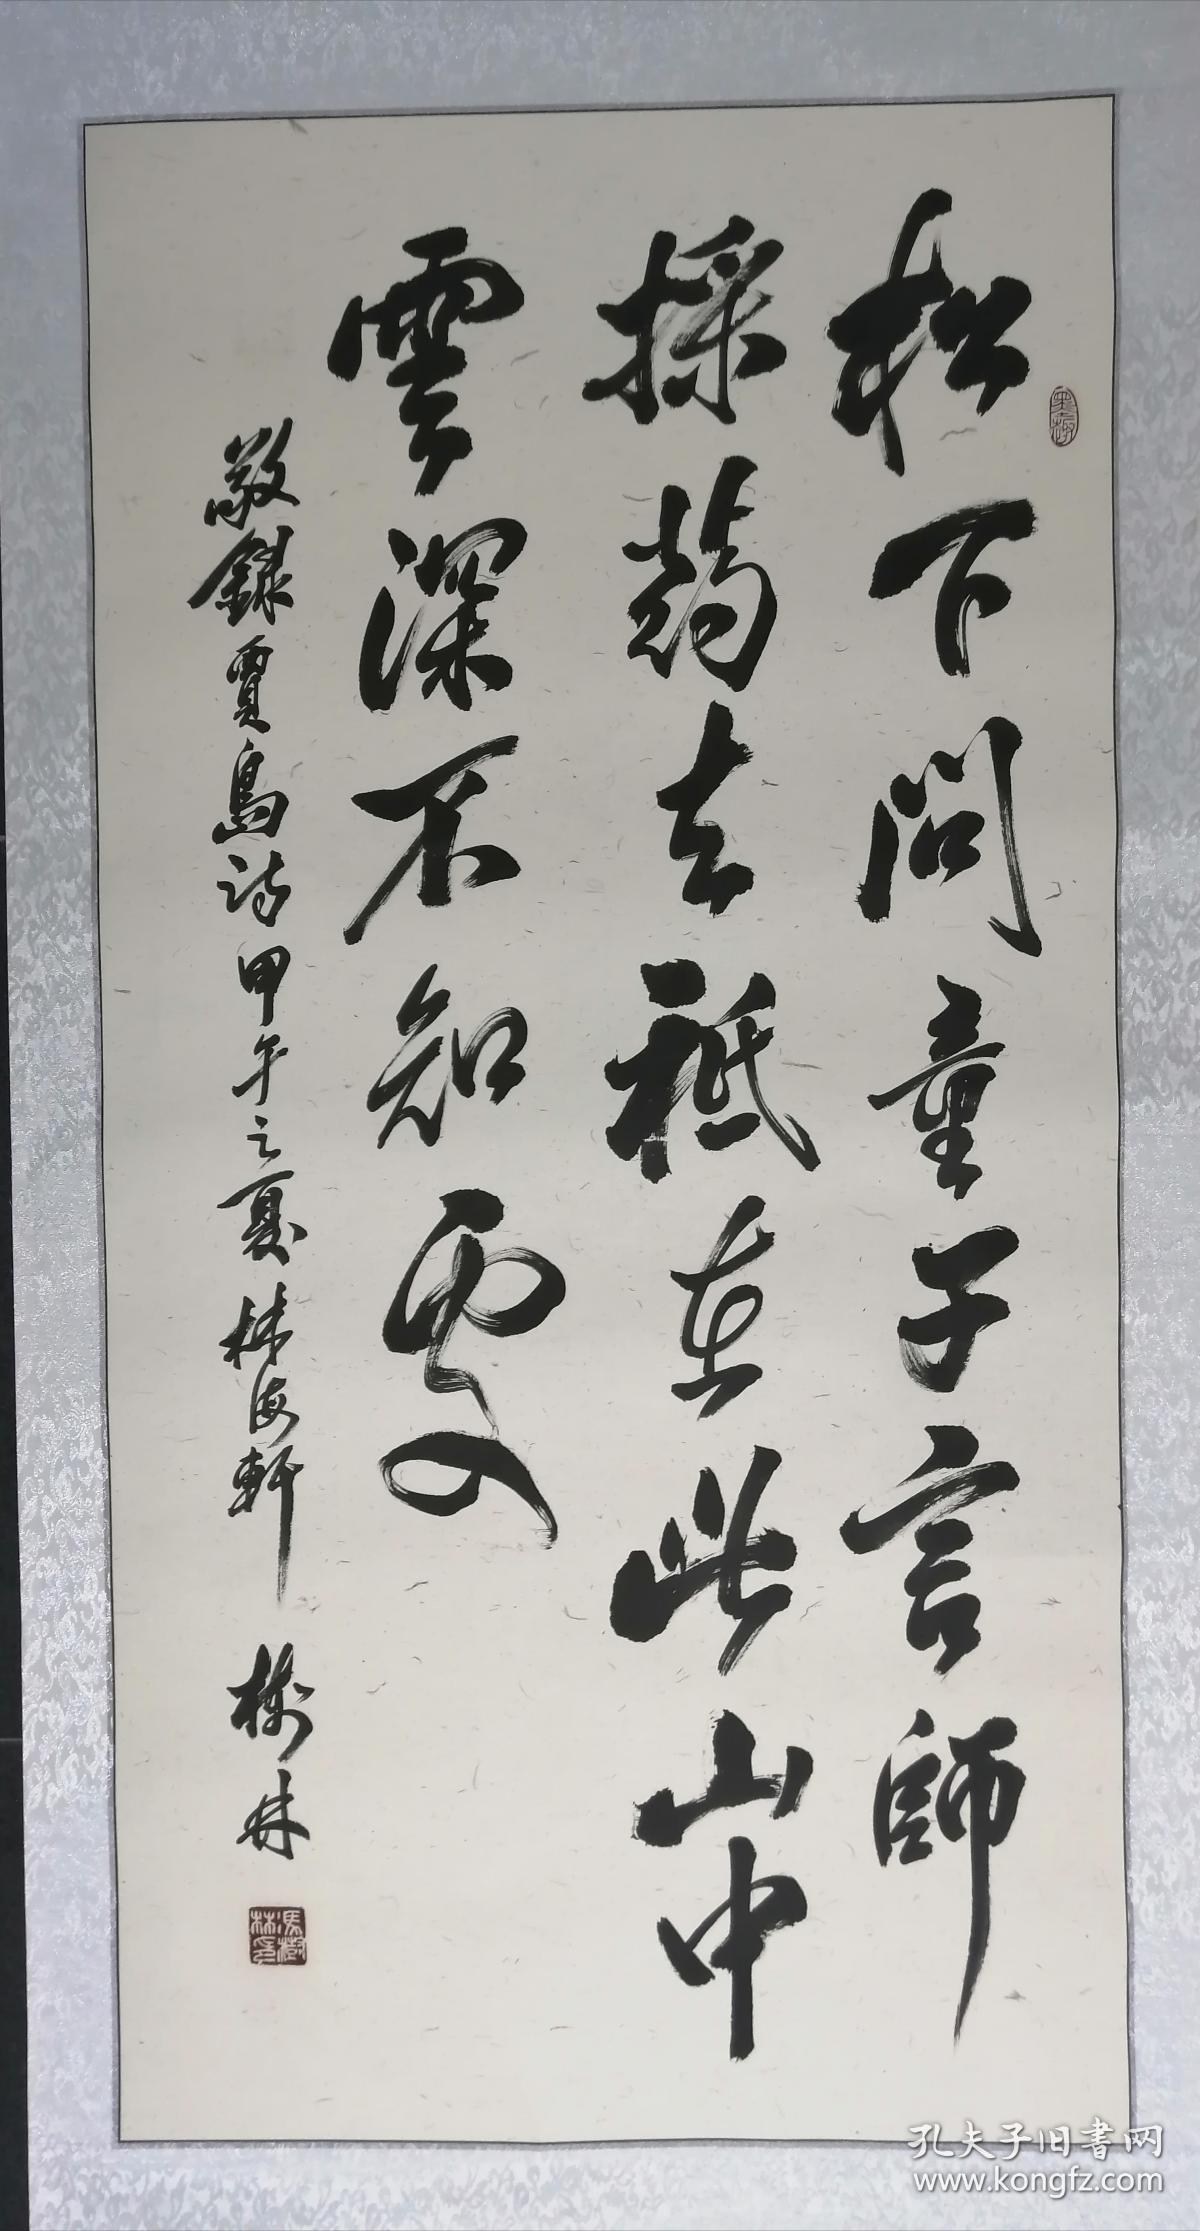 松下問童子言師
採药去祗在此山中
雲深不知處
敬録賈島詩甲午之夏林海軒 樹林
馮樹林印
孔夫子旧書网
www.kongfz.com